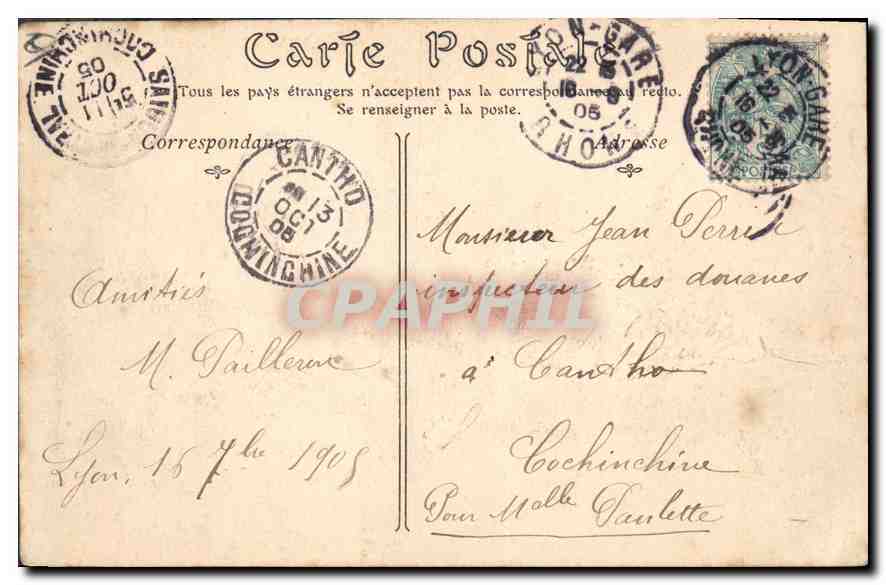 Carte Postale
Tous les pays étrangers n'acceptent pas la correspondance au recto.
Se renseigner à la poste.
Correspondance
Adresse
COCHINCHINE
11
OCT
05
CANTHO
13
OCT
05
COCHINCHINE
LYON-GARE
22
16
9
05
RHONE
LYON-GARE
22
16
05
RHONE
POSTES
CPAPHIL
Amitiés
M. Pailleron
Lyon, 16 7bre 1905
Monsieur Jean Perrin
inspecteur des douanes
à Cantho
Cochinchine
Pour Malle Paulette